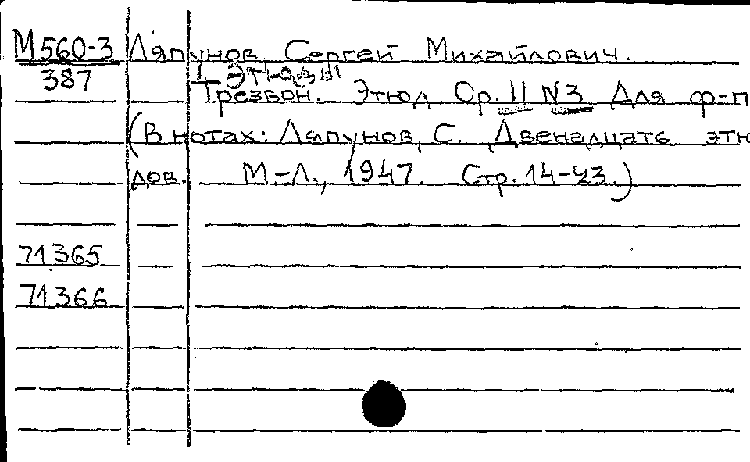 М560-3 Ляпунов, Сергей Михайлович.
387
1. Этюды
Трезвон. Этюд Op. 11 N3 Для ф-п
(В нотах: Ляпунов, С. Двенадцать этю
дов. М.-Л., 1947. Стр. 14-23.)
71365
71366